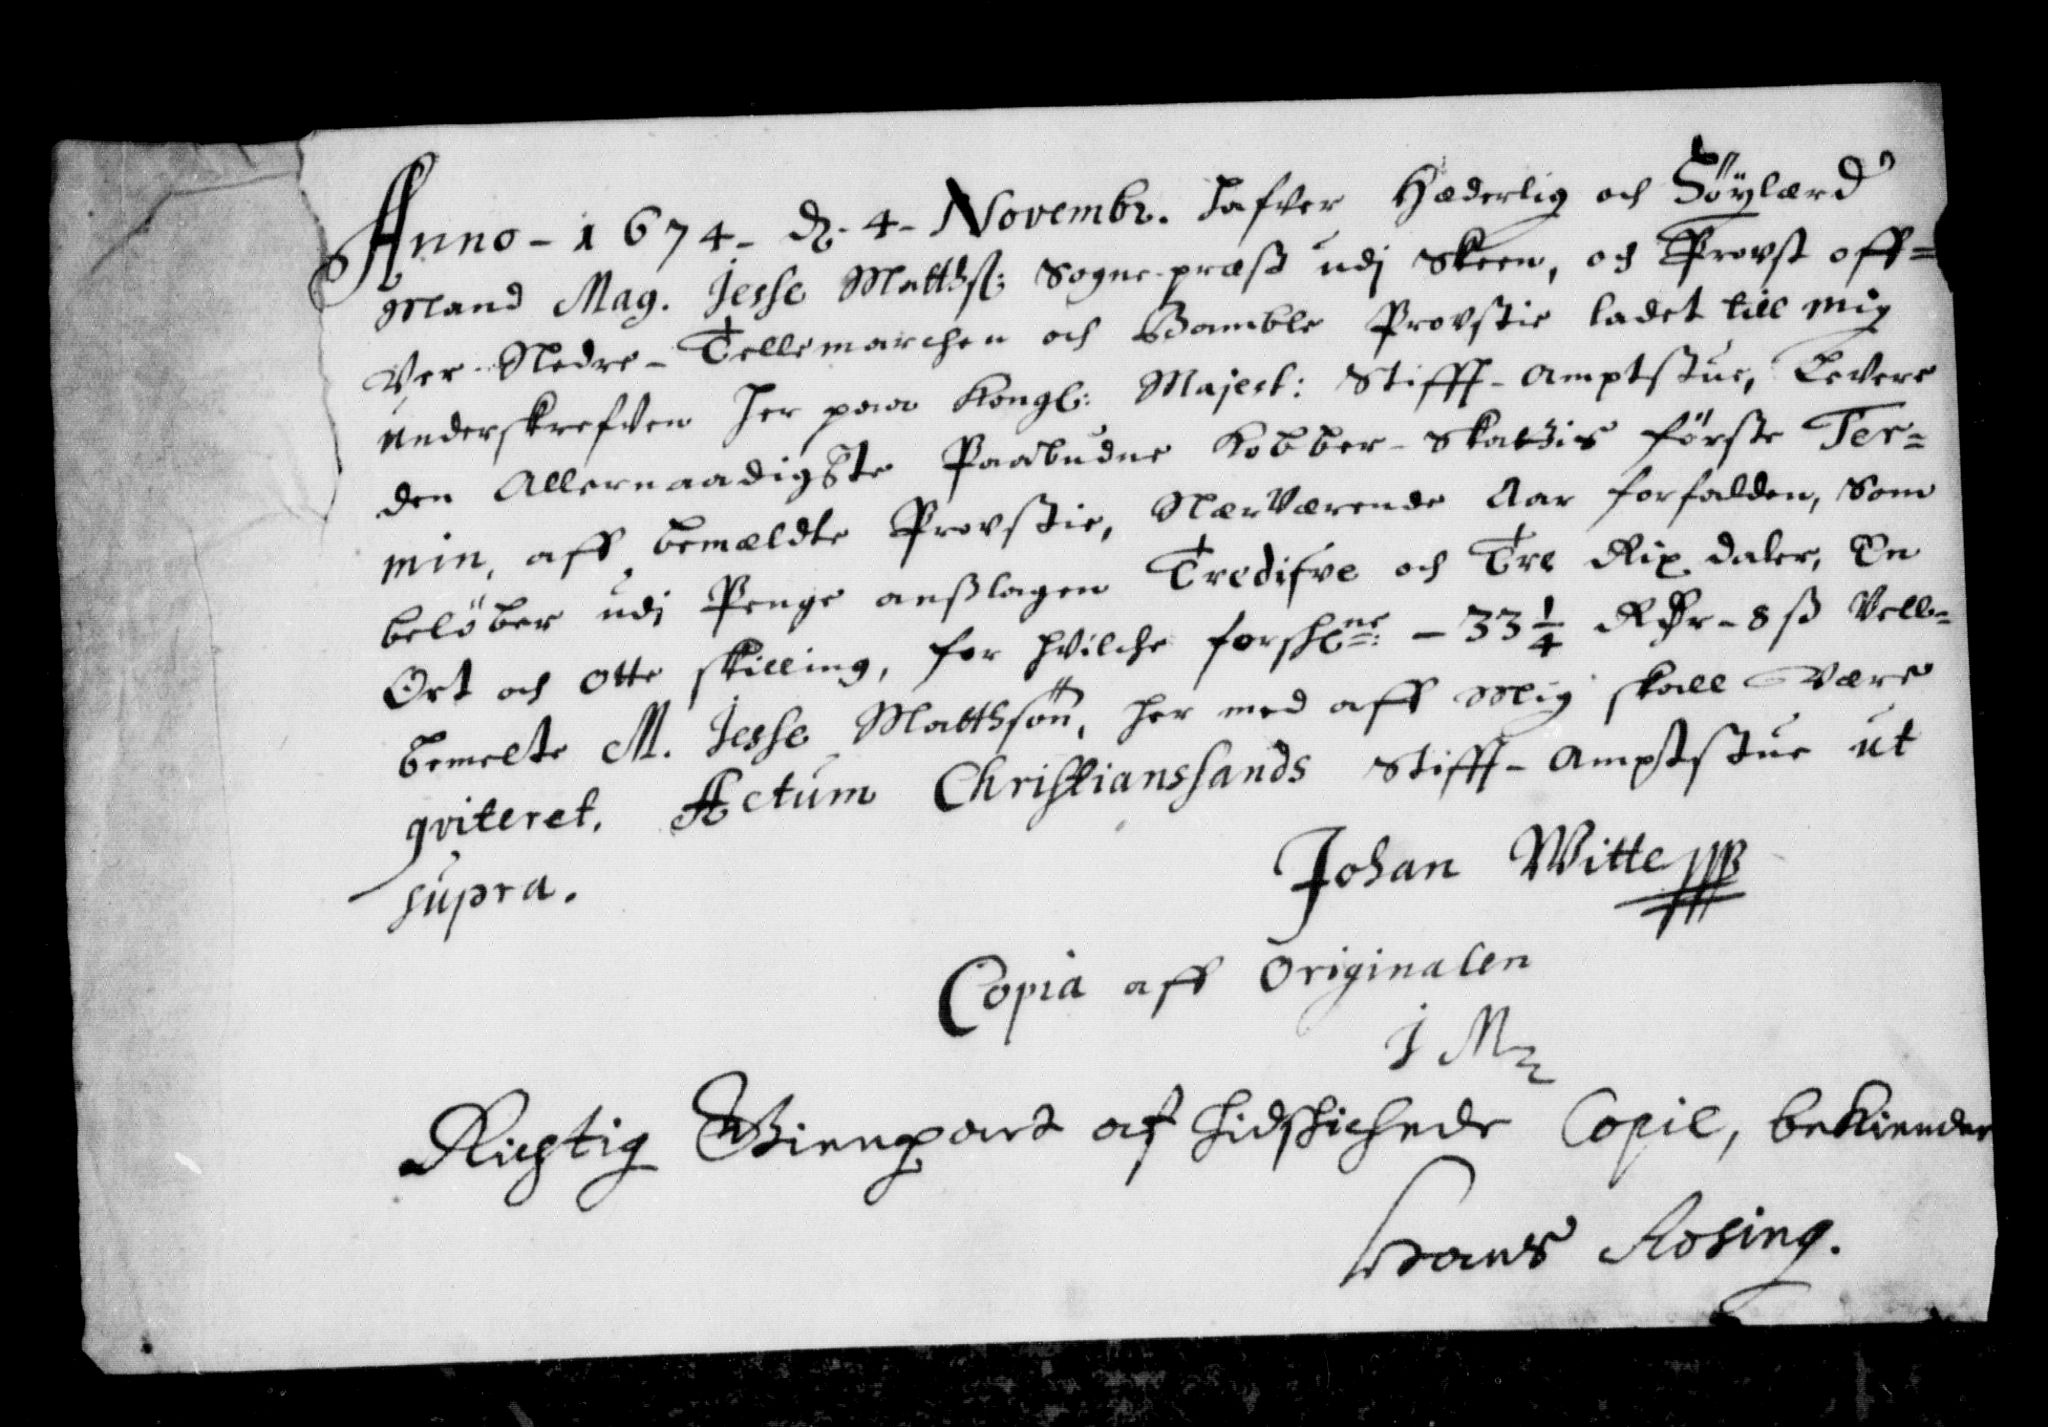 Anno - 1674 - d. 4 - Novembr. hafver Hæderlig och Höylærd
Mand Mag. Jesse Matthß: Sogne-præst udj Skeen, och Provst off=
Ver Nedre-Tellemarchen och Bamble Provstie ladet till mig
underskrefven her paa Kongl: Majest: Stifft-Amptstue, Levere
den Allernaadigste Paabudne Kobber-Skatzis förste Ter=
min, aff bemældte Provstie, Nærværende Aar forfalden, Som
belöber udj Penge anßlagen Tredifve och Tre Rix daler, En
Ort och Otte skilling, for hvilche forschne: - 33 1/4 Rdr - 8 ß Vell=
bemelte M. Jesse Matthsøn, her med aff Mig skall Være
qviteret. Actum Christianssands Stifft-Amptstue ut
supra.
Johan Witte
Copia aff Originalen
J M
Richtig Gienpart af hidschichede Copie, bekiender
Hans Rosing.